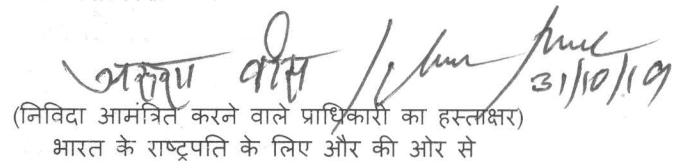 अरुणा वीस 31/10/19
(निविदा आमंत्रित करने वाले प्राधिकारी का हस्ताक्षर)
भारत के राष्ट्रपति के लिए और की ओर से